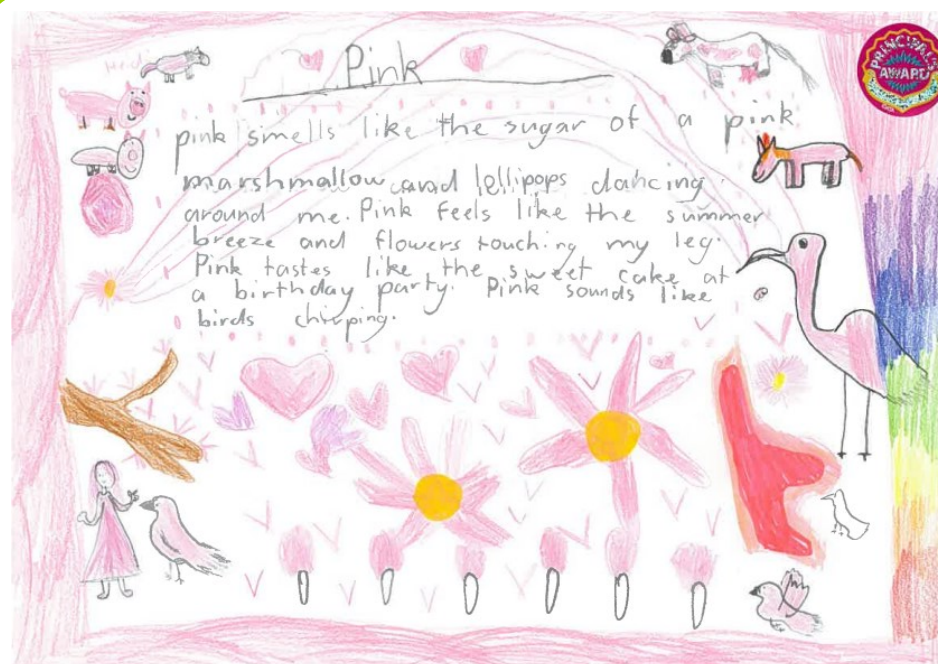 Pink
PRINCIPAL'S
AWARD
pink smells like the sugar of a pink
marshmallow and lollipops dancing
around me. Pink feels like the summer
breeze and flowers touching my leg.
Pink tastes like the sweet cake at
a birthday party. Pink sounds like
birds chirping.